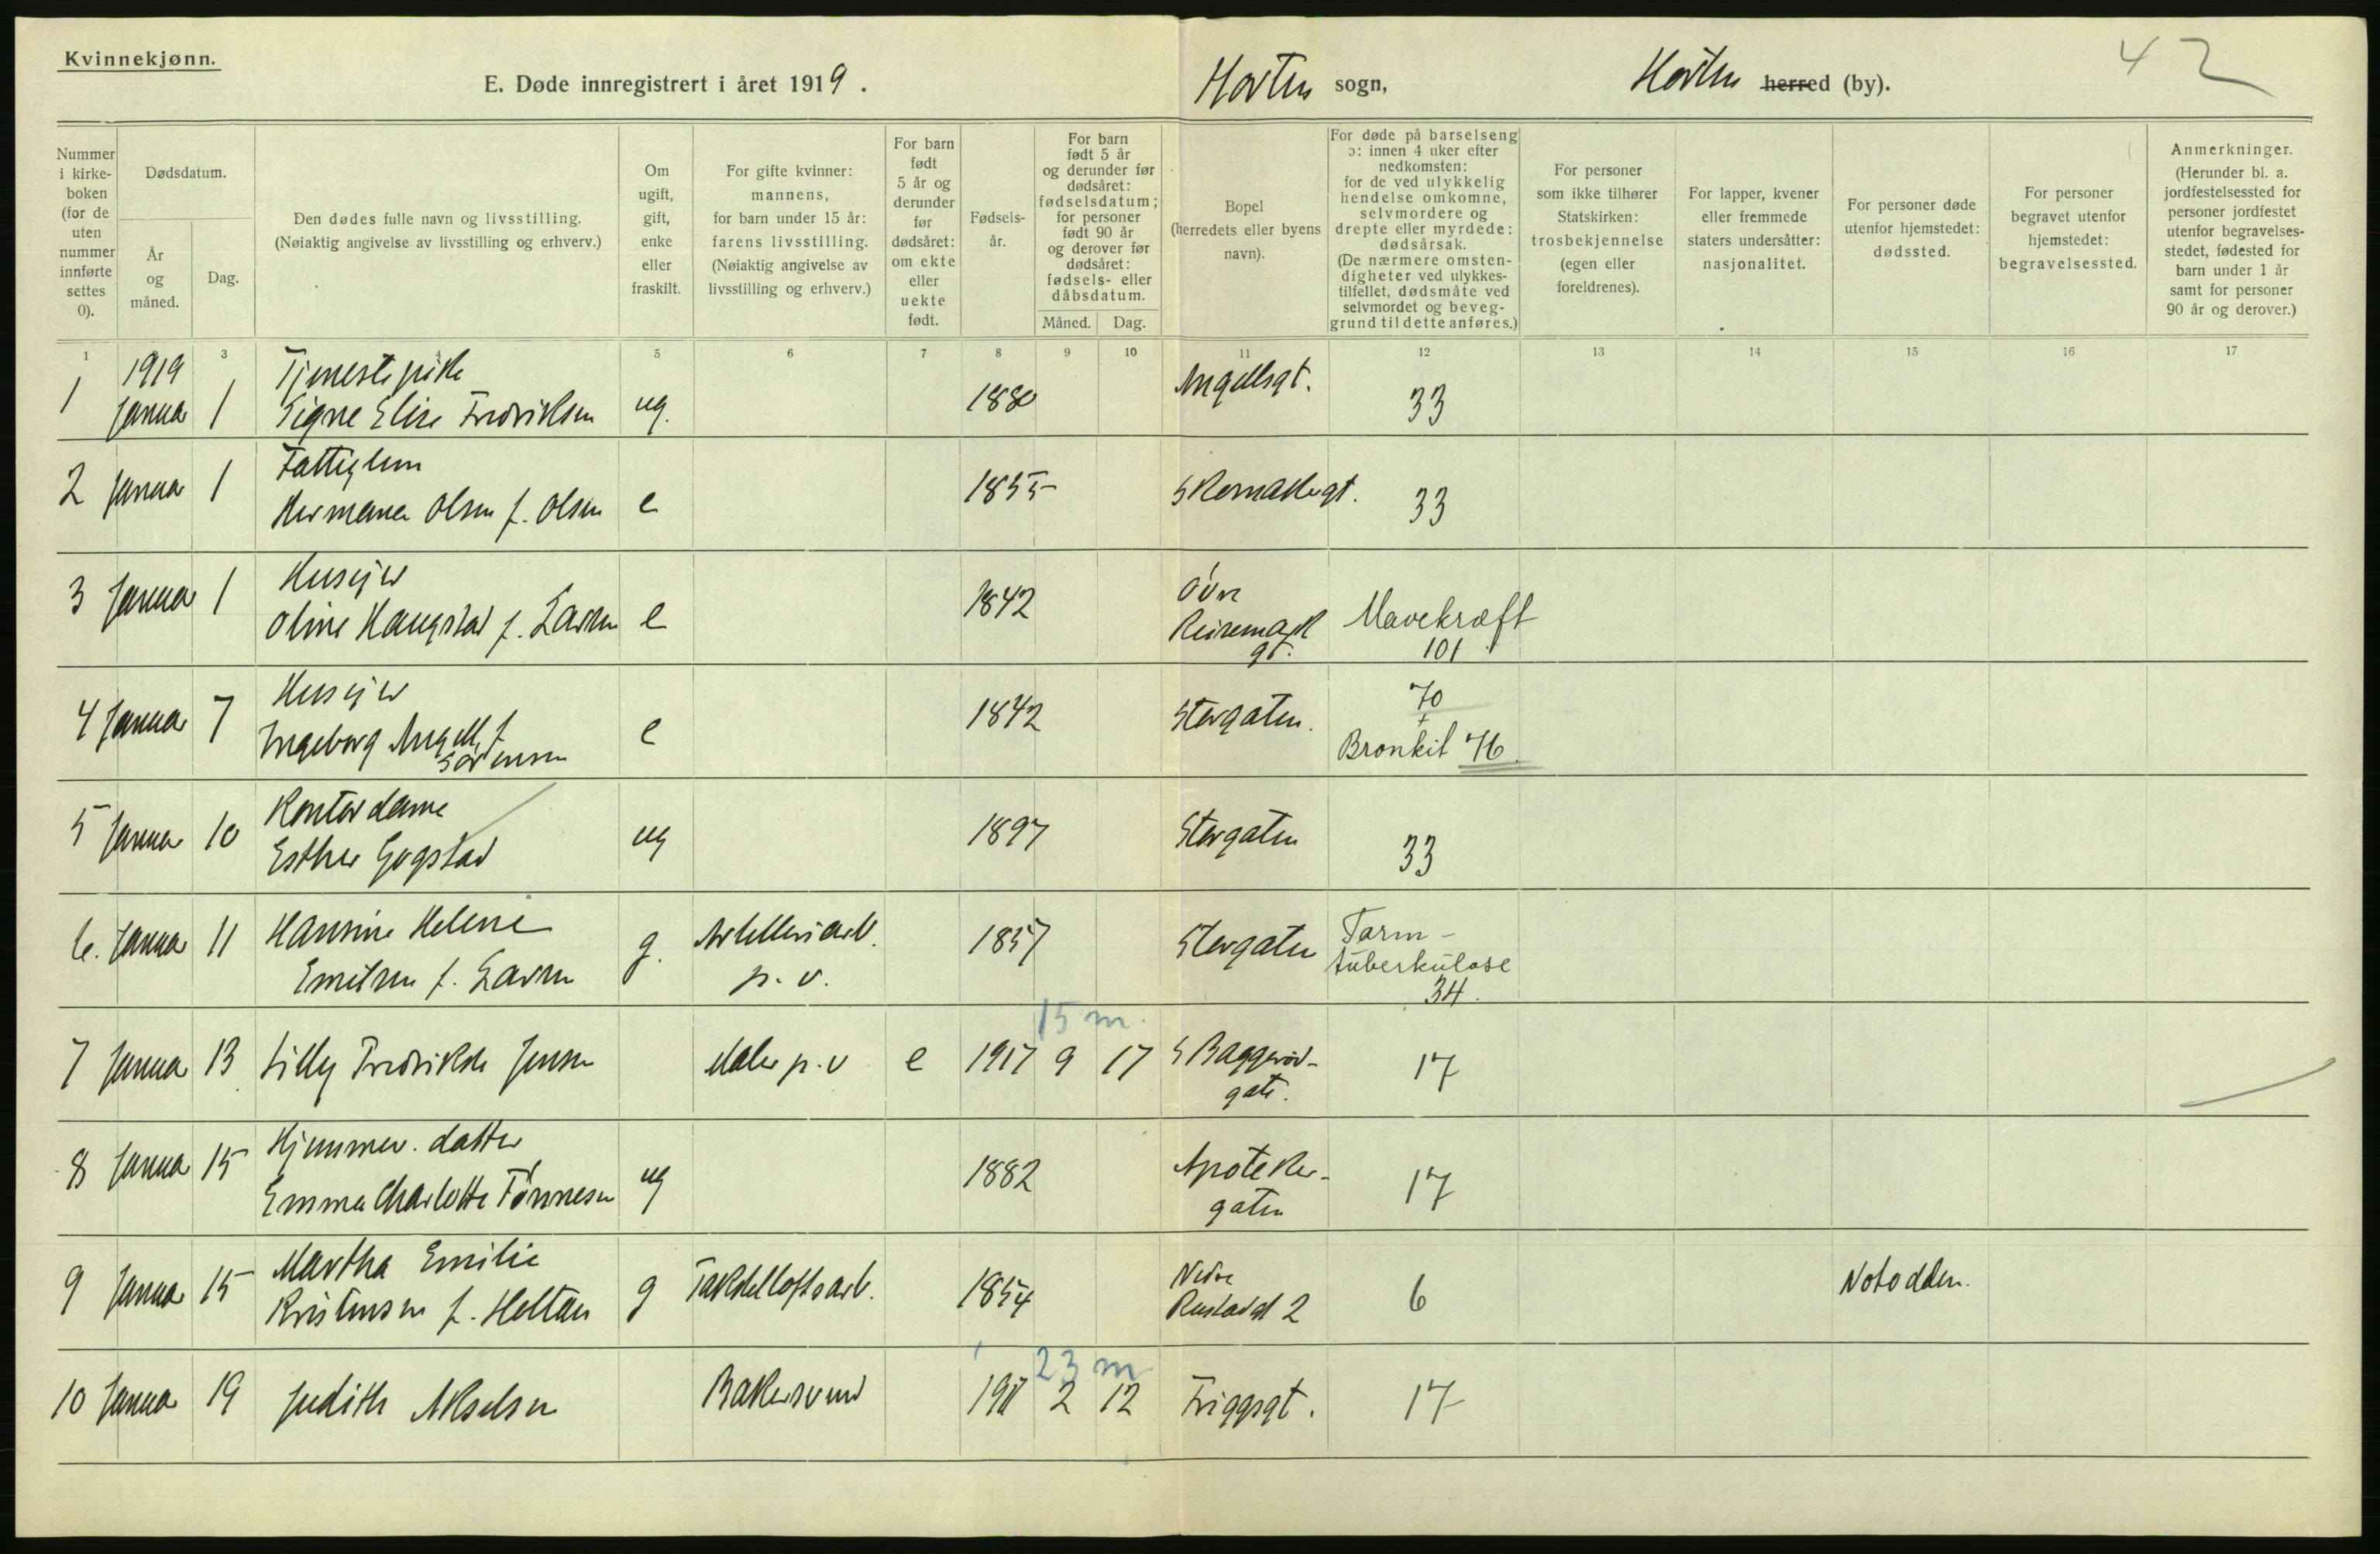 Kvinnekjønn.
E. Døde innregistrert i året 1919.
Horten sogn,
Horten herred (by).
42
Nummer i kirkeboken (for de uten nummer innførte settes 0).
Dødsdatum.
År og måned.
Dag.
Den dødes fulle navn og livsstilling.
(Nøiaktig angivelse av livsstilling og erhverv.)
Om ugift, gift, enke eller fraskilt.
For gifte kvinner: mannens, for barn under 15 år: farens livsstilling. (Nøiaktig angivelse av livsstilling og erhverv.)
For barn født 5 år og derunder før dødsåret: om ekte eller uekte født.
Fødselsår.
For barn født 5 år og derunder før dødsåret: fødselsdatum; for personer født 90 år og derover før dødsåret: fødsels- eller dåbsdatum.
Måned. Dag.
Bopel (herredets eller byens navn).
For døde på barselseng ɔ: innen 4 uker efter nedkomsten: for de ved ulykkelig hendelse omkomne, selvmordere og drepte eller myrdede: dødsårsak. (De nærmere omstendigheter ved ulykkestilfellet, dødsmåte ved selvmordet og beveggrund til dette anføres.)
For personer som ikke tilhører Statskirken: trosbekjennelse (egen eller foreldrenes).
For lapper, kvener eller fremmede staters undersåtter: nasjonalitet.
For personer døde utenfor hjemstedet: dødssted.
For personer begravet utenfor hjemstedet: begravelsessted.
Anmerkninger. (Herunder bl. a. jordfestelsessted for personer jordfestet utenfor begravelsesstedet, fødested for barn under 1 år samt for personer 90 år og derover.)
1 3 5 6 7 8 9 10 11 12 13 14 15 16 17
1 1919 Januar 1 Tjenestepike Signe Elise Fredriksen ug. 1880 Angellsgt. 33
2 Januar 1 Fattiglem Hermana Olsen f. Olsen e 1855 Skomakergt. 33
3 Januar 1 Huseier Oline Haugstad f. Larsen e 1842 Øvre Keisemark gt. Mavekræft 101
4 Januar 7 Huseier Ingeborg Angell f. Sørensen e 1842 Storgaten. 70 + Bronkit 76.
5 Januar 10 Kontordame Esther Gogstad ug 1897 Storgaten 33
6. Januar 11 Hansine Helene Emilsen f. Larsen g. Artilleriarb. p. v. 1857 Storgaten Tarmtuberkulose 34.
7 Januar 13 Lilly Fredrikke Jensen Maler p. v e 1917 9 17 15 m. S Baggerødgate. 17
8 Januar 15 Hjemmev. datter Emma Charlotte Tønnesen ug 1882 Apotekergaten 17
9 Januar 15 Martha Emilie Kristensen f. Holtan g Takkelloftsarb. 1854 Nedre Rustadgt 2 6 Notodden.
10 Januar 19 Judith Akselsen Bakersvend 1917 2 12 23 m Friggsgt. 17